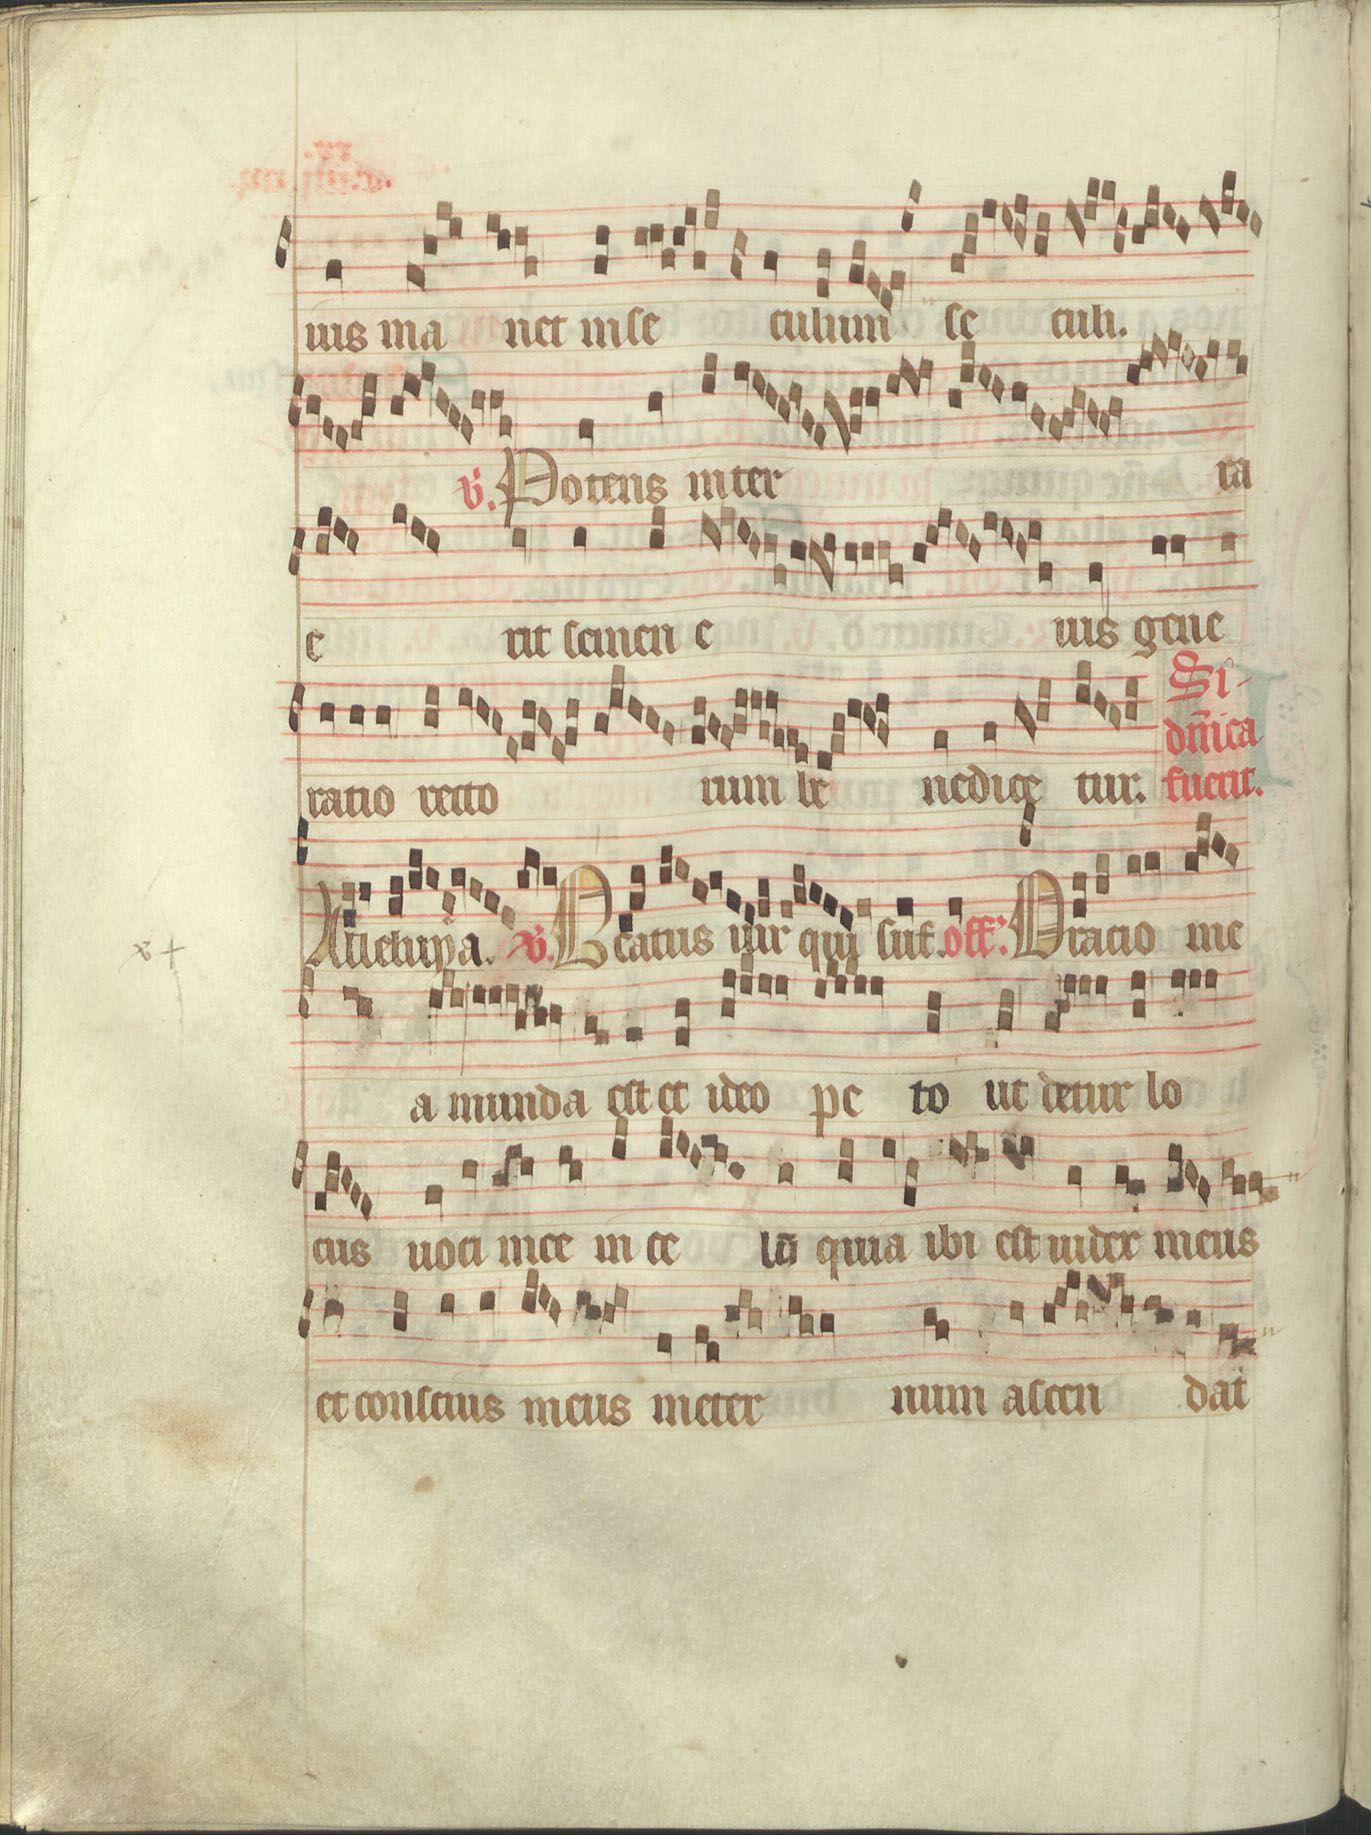 uis ma net in se culum se culi.
v. Potens in ter ra
e rit semen e ius gene
ratio recto rum be nedice tur. Si
dn̄ica
fuerit.
Alleluya. v. Beatus uir qui suf. off. Oratio me
a munda est et ideo pe to ut detur lo
cus uoci mee in ce lū quia ibi est iudex meus
et conscius meus in eter num ascen dat